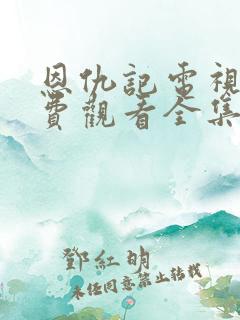 恩仇記電視
費觀看全集
鄧紅明
未经同意禁止转载